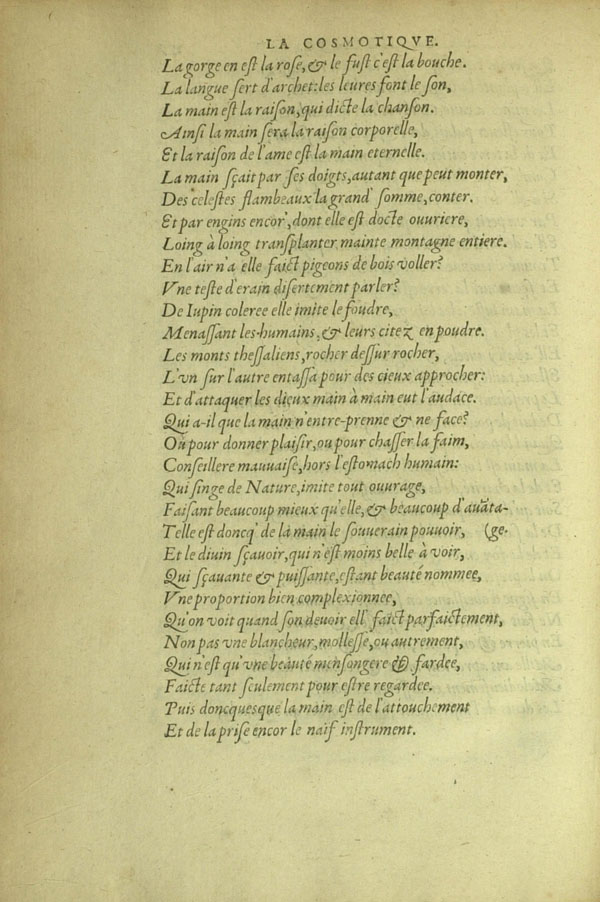 LA COSMOTIQVE.
La gorge en est la rose, & le fust c'est la bouche.
La langue sert d'archet: les leures font le son,
La main est la raison, qui dicte la chanson.
Ainsi la main sera la raison corporelle,
Et la raison de l'ame est la main eternelle.
La main sçait par ses doigts, autant que peut monter,
Des celestes flambeaux la grand' somme, conter.
Et par engins encor', dont elle est docte ouuriere,
Loing à loing transplanter mainte montagne entiere.
En l'air n'a elle faict pigeons de bois voller?
Vne teste d'erain disertement parler?
De Iupin coleree elle imite le foudre,
Menassant les humains, & leurs citez en poudre.
Les monts thessaliens, rocher dessur rocher,
L'vn sur l'autre entassa pour des cieux approcher:
Et d'attaquer les dieux main à main eut l'audace.
Qui a-il que la main n'entre-prenne & ne face?
Où pour donner plaisir, ou pour chasser la faim,
Conseillere mauuaise, hors l'estomach humain:
Qui singe de Nature, imite tout ouurage,
Faisant beaucoup mieux qu'elle, & beaucoup d'auãta-
Telle est doncq' de la main le souuerain pouuoir, (ge.
Et le diuin sçauoir, qui n'est moins belle à voir,
Qui sçauante & puissante, estant beauté nommee,
Vne proportion bien complexionnee,
Qu'on voit quand son deuoir ell' faict parfaictement,
Non pas vne blancheur, mollesse, ou autrement,
Qui n'est qu'vne beauté mensongere & fardee,
Faicte tant seulement pour estre regardee.
Puis doncquesque la main est de l'attouchement
Et de la prise encor le naif instrument.